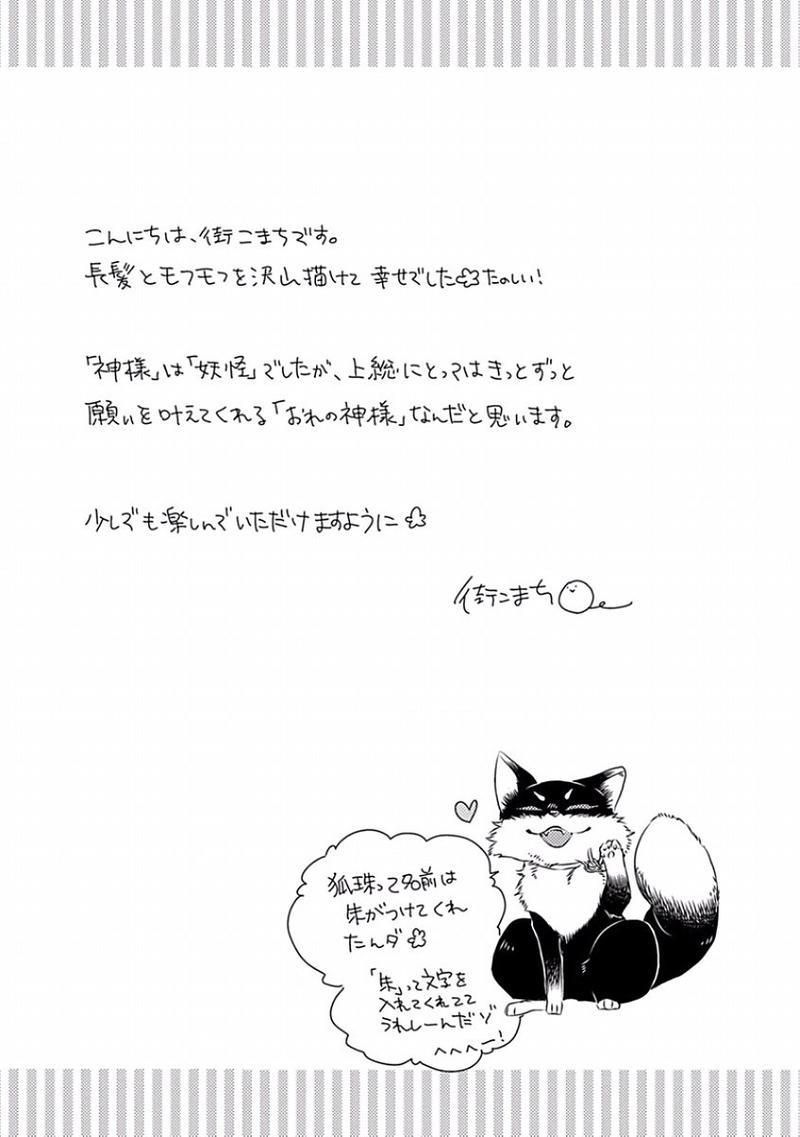 こんにちは、街こまちです。
長髪とモフモフを沢山描けて 幸せでしたたのしい！
「神様」は「妖怪」でしたが、上総にとってはきっとずっと
願いを叶えてくれる「おれの神様」なんだと思います。
少しでも楽しんでいただけますように
街こまち
狐珠って名前は
朱がつけてくれ
たんダ
「朱」って文字を
入れてくれてて
うれしーんだゾ
へへへー！